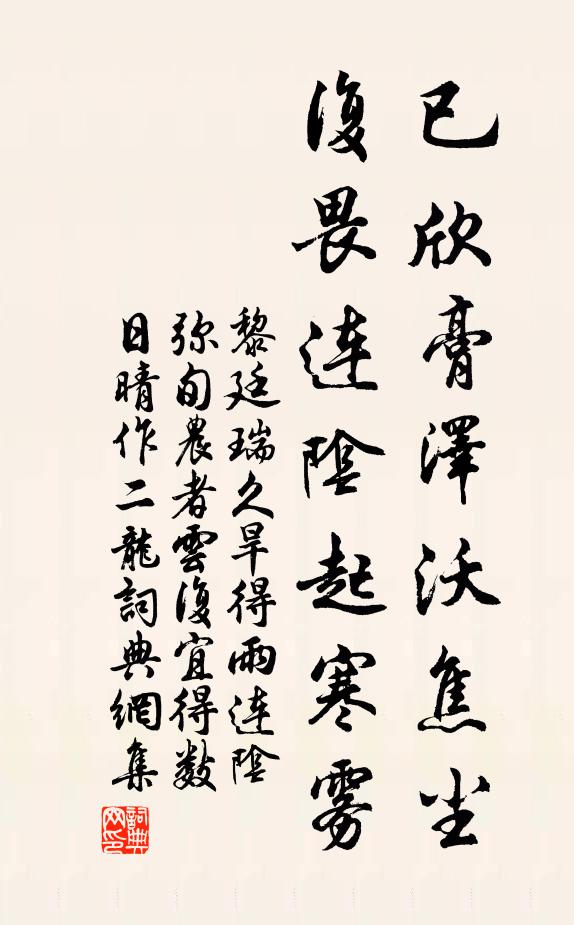 已欣膏澤沃焦尘
復畏連陰起寒霧
黎廷瑞久旱得雨連陰
弥旬農者雲復宜得数
日晴作二龍詞典網集
詞典
网印